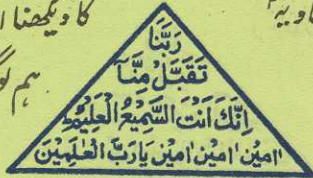 کا دیکھنا
ہم
رَبَّنَا
تَقَبَّلْ مِنَّا
اِنَّكَ اَنْتَ السَّمِيْعُ الْعَلِيْمُ
اٰمِيْن اٰمِيْن اٰمِيْن يَارَبَّ الْعٰلَمِيْنَ